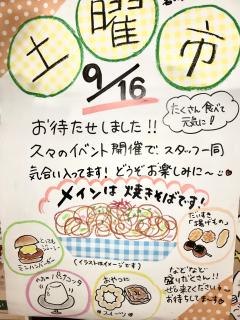 土曜市
9/16
たくさん食べて
元気に!
お待たせしました!!
久々のイベント開催で、スタッフ一同
気合い入ってます!どうぞお楽しみに〜
メインは焼きそばです!
(イラストはイメージです)
だいすき
「揚げもの」
とっても
ジューシー
ミニハンバーガー
パンナコッタ
おやつに
スイーツ
などなど
盛りだくさん!!
ぜひ来てくださいね
お待ちしてます